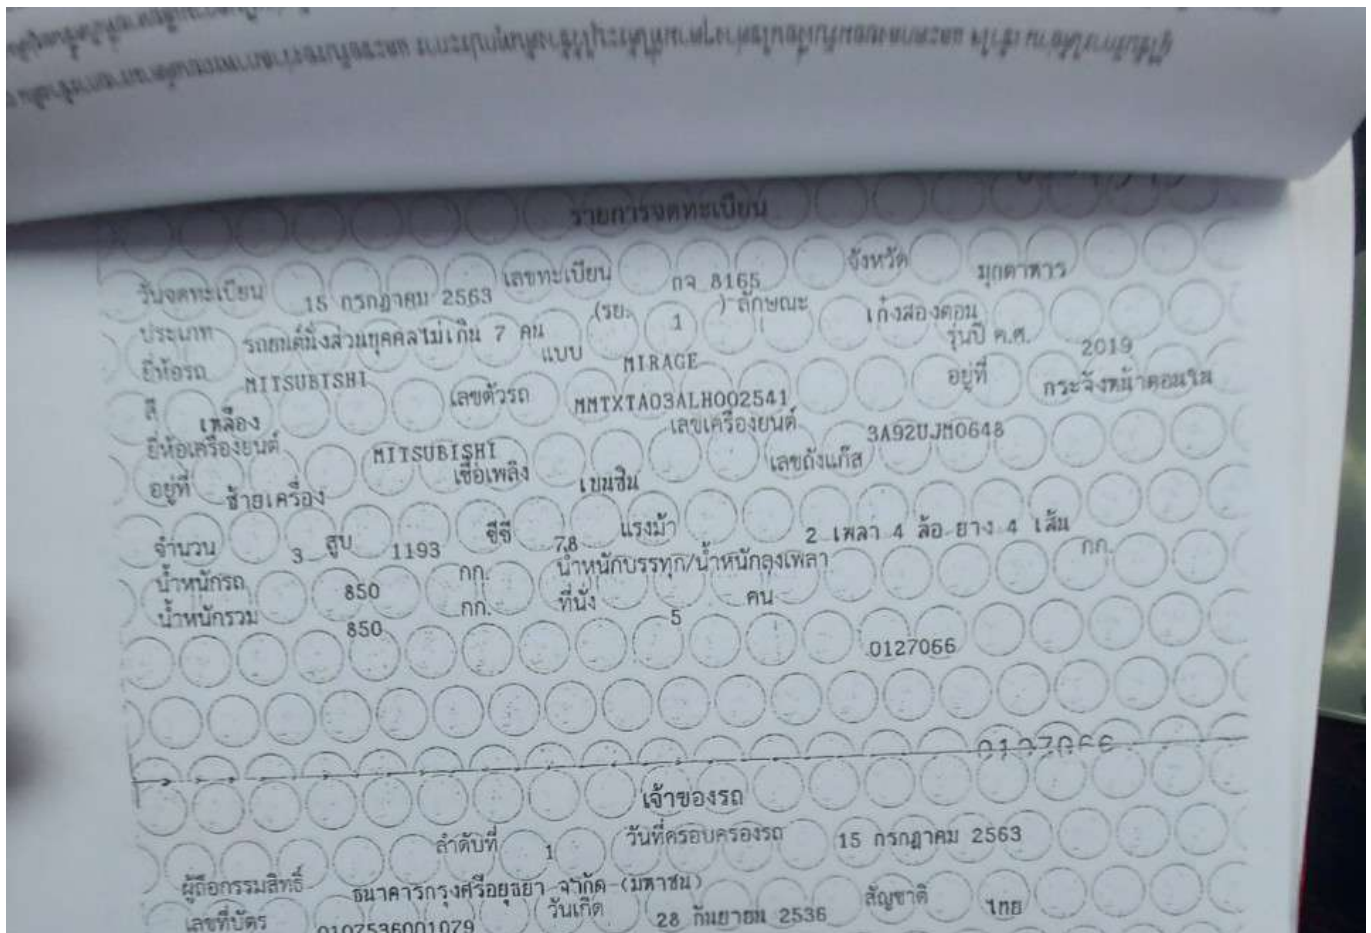 รายการจดทะเบียน
วันจดทะเบียน 15 กรกฎาคม 2563 เลขทะเบียน กจ 8165 จังหวัด มุกดาหาร
ประเภท รถยนต์นั่งส่วนบุคคลไม่เกิน 7 คน (รย. 1 ) ลักษณะ เก๋งสองตอน
ยี่ห้อรถ MITSUBISHI แบบ MIRAGE รุ่นปี ค.ศ. 2019
สี เหลือง เลขตัวรถ MMTXTA03ALH002541 อยู่ที่ กระจังหน้าตอนใน
ยี่ห้อเครื่องยนต์ MITSUBISHI เลขเครื่องยนต์ 3A92UJM0648
อยู่ที่ ซ้ายเครื่อง เชื้อเพลิง เบนซิน เลขถังแก๊ส
จำนวน 3 สูบ 1193 ซีซี 78 แรงม้า 2 เพลา 4 ล้อ ยาง 4 เส้น
น้ำหนักรถ 850 กก. น้ำหนักบรรทุก/น้ำหนักลงเพลา กก.
น้ำหนักรวม 850 กก. ที่นั่ง 5 คน
0127066
0127066
เจ้าของรถ
ลำดับที่ 1 วันที่ครอบครองรถ 15 กรกฎาคม 2563
ผู้ถือกรรมสิทธิ์ ธนาคารกรุงศรีอยุธยา จำกัด (มหาชน)
เลขที่บัตร 0107536001079 วันเกิด 28 กันยายน 2536 สัญชาติ ไทย